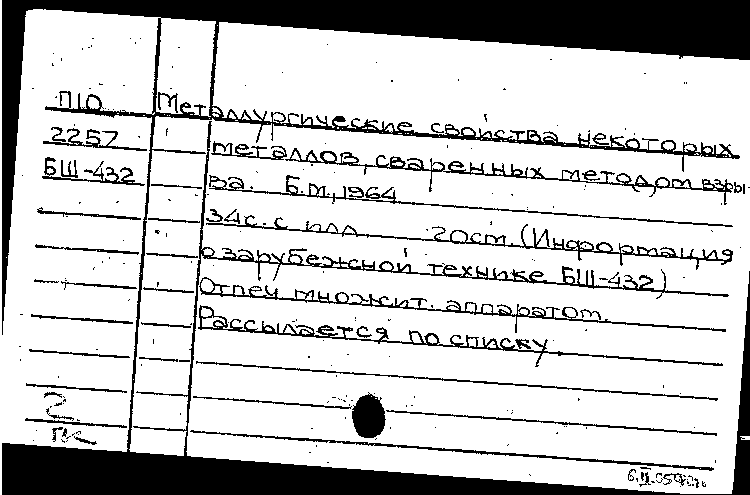 П10
2257
БШ-432
Металлургические свойства некоторых
металлов, сваренных методом взры-
ва. Б.м., 1964
34с. с илл. 20см. (Информация
о зарубежной технике БШ-432)
Отпеч множит. аппаратом.
Рассылается по списку.
2
ГК